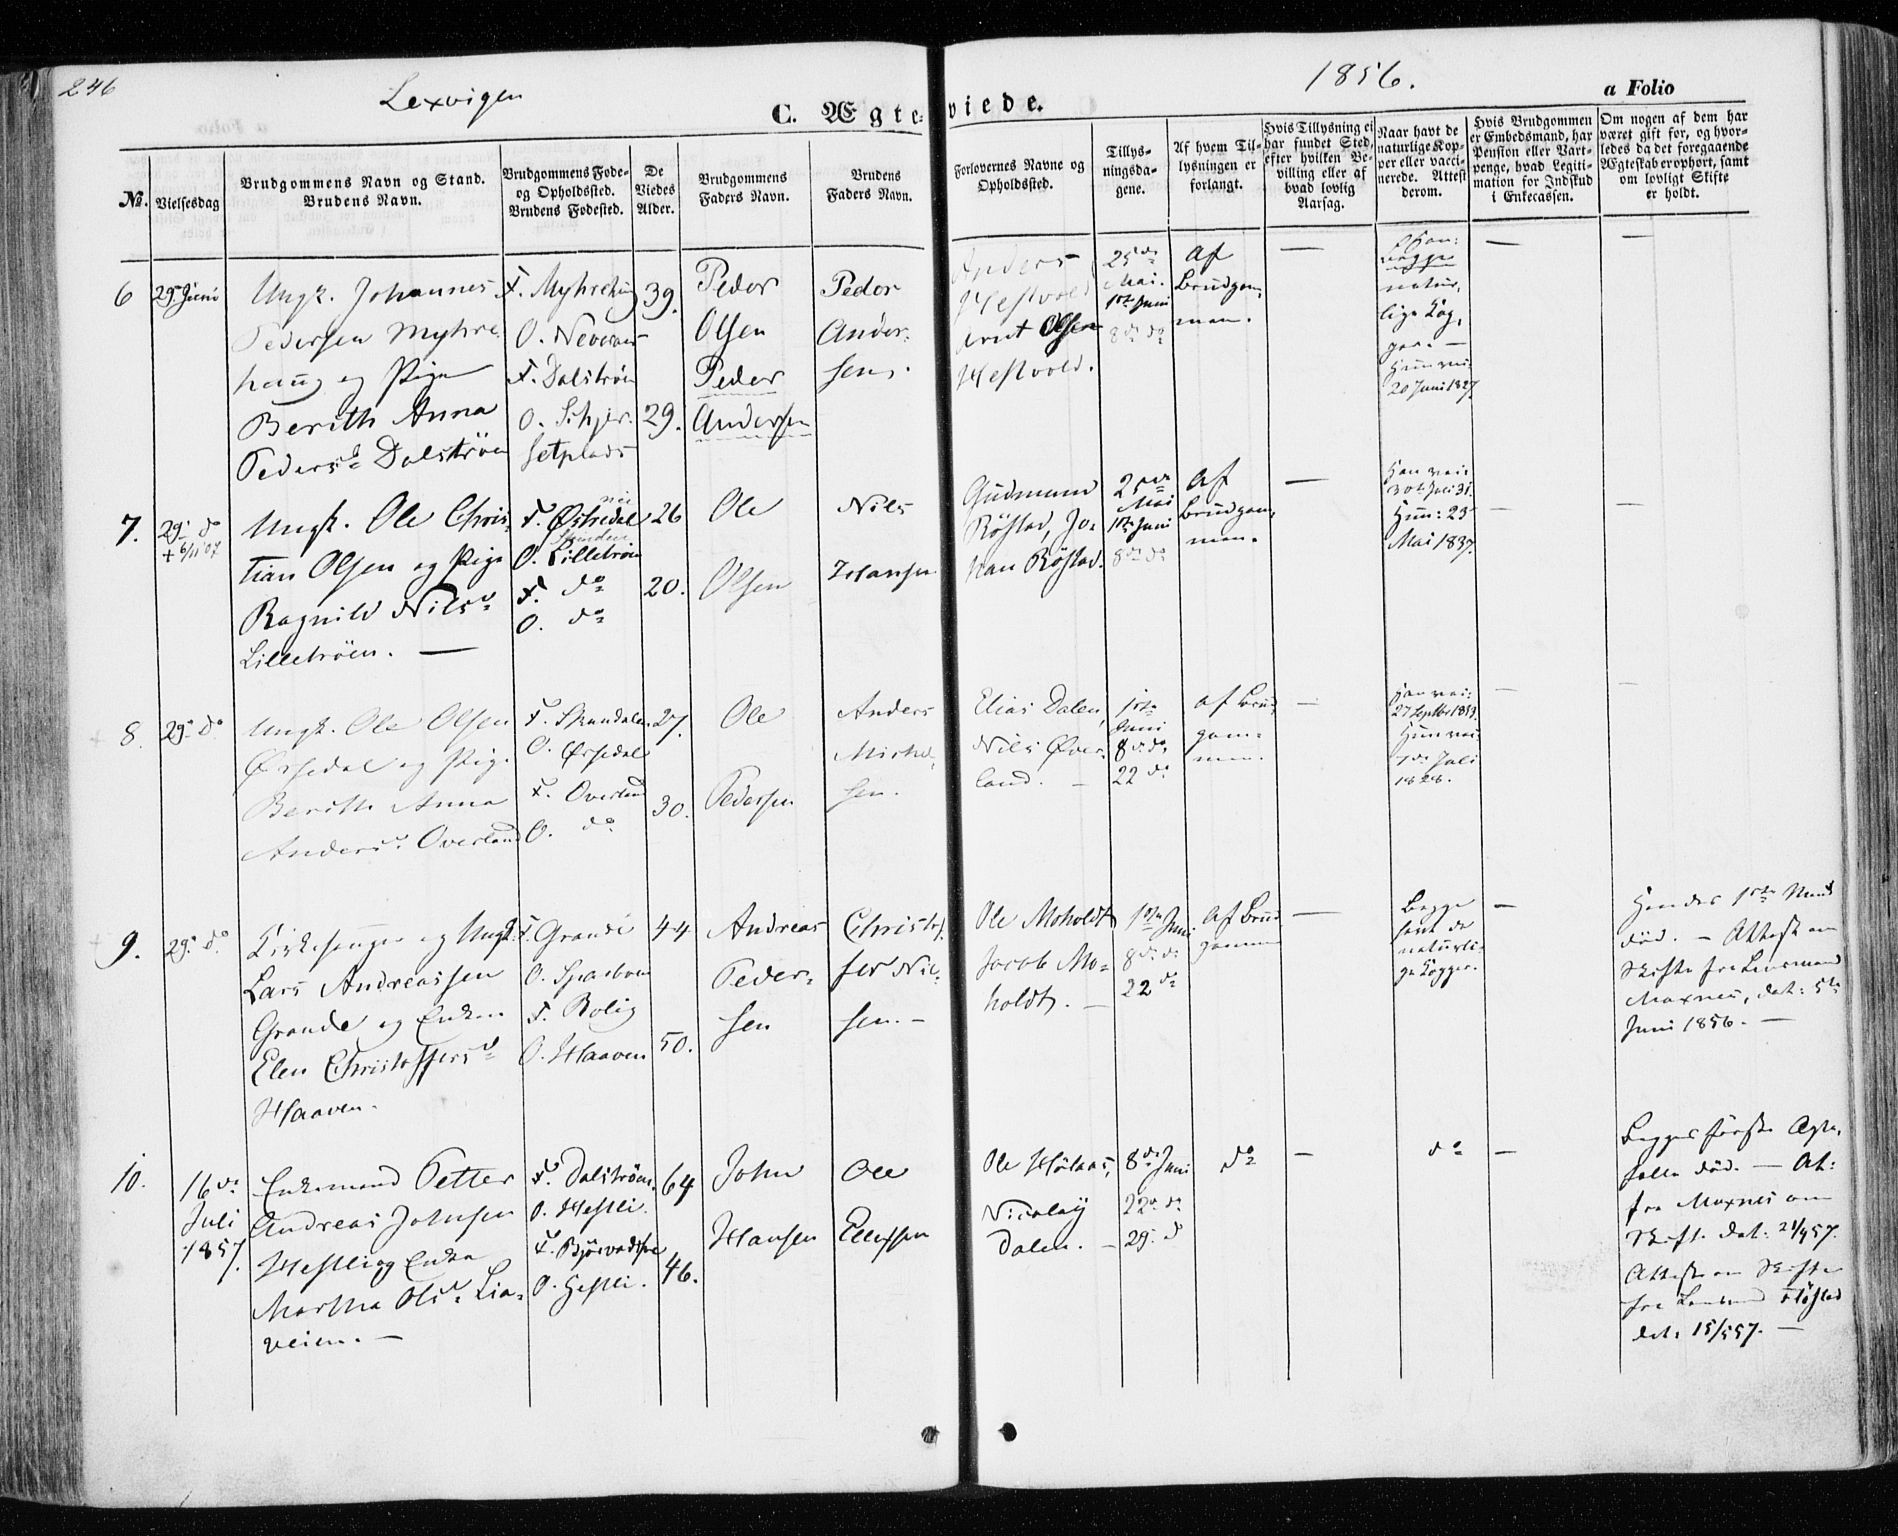 246
Lexvigen
1856.
C. Ægteviede.
a Folio
No.
Vielsesdag
Brudgommens Navn og Stand.
Brudens Navn.
Brudgommens Føde-
og Opholdssted.
Brudens Fødested.
De
Viedes
Alder.
Brudgommens
Faders Navn.
Brudens
Faders Navn.
Forlovernes Navne og
Opholdssted.
Tillys-
ningsda-
gene.
Af hvem Til-
lysningen er
forlangt.
Hvis Tillysning ei
har fundet Sted,
efter hvilken Be-
villing eller af
hvad lovlig
Aarsag.
Naar havt de
naturlige Kop-
per eller vacci-
nerede. Attest
derom.
Hvis Brudgommen
er Embedsmand, har
Pension eller Vart-
penge, hvad Legiti-
mation for Indskud
i Enkecassen.
Om nogen af dem har
været gift før, og hvor-
ledes da det foregaaende
Ægteskab er ophørt, samt
om lovligt Skifte
er holdt.
6
29 Juni
Ungk. Johannes
Pedersen Myhre-
haug og Pige
Berith Anna
Pedersd. Dalstrøen
F. Myhrehaug
O. Neveraas
F. Dalstrøen
O. Schjer-
setplads
39.
29.
Peder
Olsen
Peder
Andersen
Peder
Ander-
sen.
Anders
Hestvold
Arnt Olsen
Hestvold.
25de
Mai.
1ste Juni
8de do
Af
Brudgom-
men.
—
Begge
natur-
lige Kop-
per. —
20 Juni 1827
—
—
7.
29. do
+ 6/11 07
Ungk. Ole Chris-
tian Olsen og Pige
Ragnild Nilsd.
Lilletrøen. —
F. Østredal
O. Lilletrøen
F. do
O. do
26
20.
Ole
Olsen
Nils
Johansen
Gudmund
Røstad, Jo-
han Røstad.
25de
Mai
1ste Juni
8de do
Af
Brudgom-
men.
—
Han vac:
30te Juli 31.
Hun: 23
Mai 1837.
—
—
8.
29. do
Ungk. Ole Olsen
Ørsedal og Pige
Berith Anna
Andersd. Overland
F. Skundalen
O. Ørsedal
F. Overland
O. do
27.
30.
Ole
Pedersen
Anders
Michel-
sen.
Elias Dalen,
Nils Øver-
land. —
1ste
Juni
8de do
22 do
af Brud-
gom-
men.
—
Han vac:
27 Septbr 1833.
Hun vac
1de Juli
1828.
—
—
9.
29. do
Kirkesanger og Ungk.
Lars Andreassen
Grande og Enken
Elen Christoffersd.
Haaven.
F. Grande
O. Sparboen
F. Bolig
O. Haaven
44
50.
Andreas
Peder-
sen
Christof-
fer Nil-
sen. —
Ole Moholdt
Jacob Mo-
holdt. —
1ste Juni
8de do
22 do
Af Brud-
gommen
—
Begge
havt de
naturli-
ge Kopper.
—
Hendes 1ste Mand
død. — Attest om
Skifte fra Lensmand
Moxnes, dat: 5te
Juni 1856. —
10.
16de
Juli
1857.
Enkemand Petter
Andreas Johnsen
Hestli og Enke
Martha Olsd. Lia-
veien. —
F. Dalstrøen.
O. Hestli.
O. Hestli.
64
46.
John
Hansen
Ole
Ellefsen
Ole Høkaas,
Nicolay
Dalen. —
8de Juni
22de do
29. d
do
—
do
—
Begges første Ægte-
fælle død. — At:
fra Moxnes om
Skift. dat: 21/4 57.
Attest om Skifte
fra Lensmand Fløstad
dat: 15/5 57. —